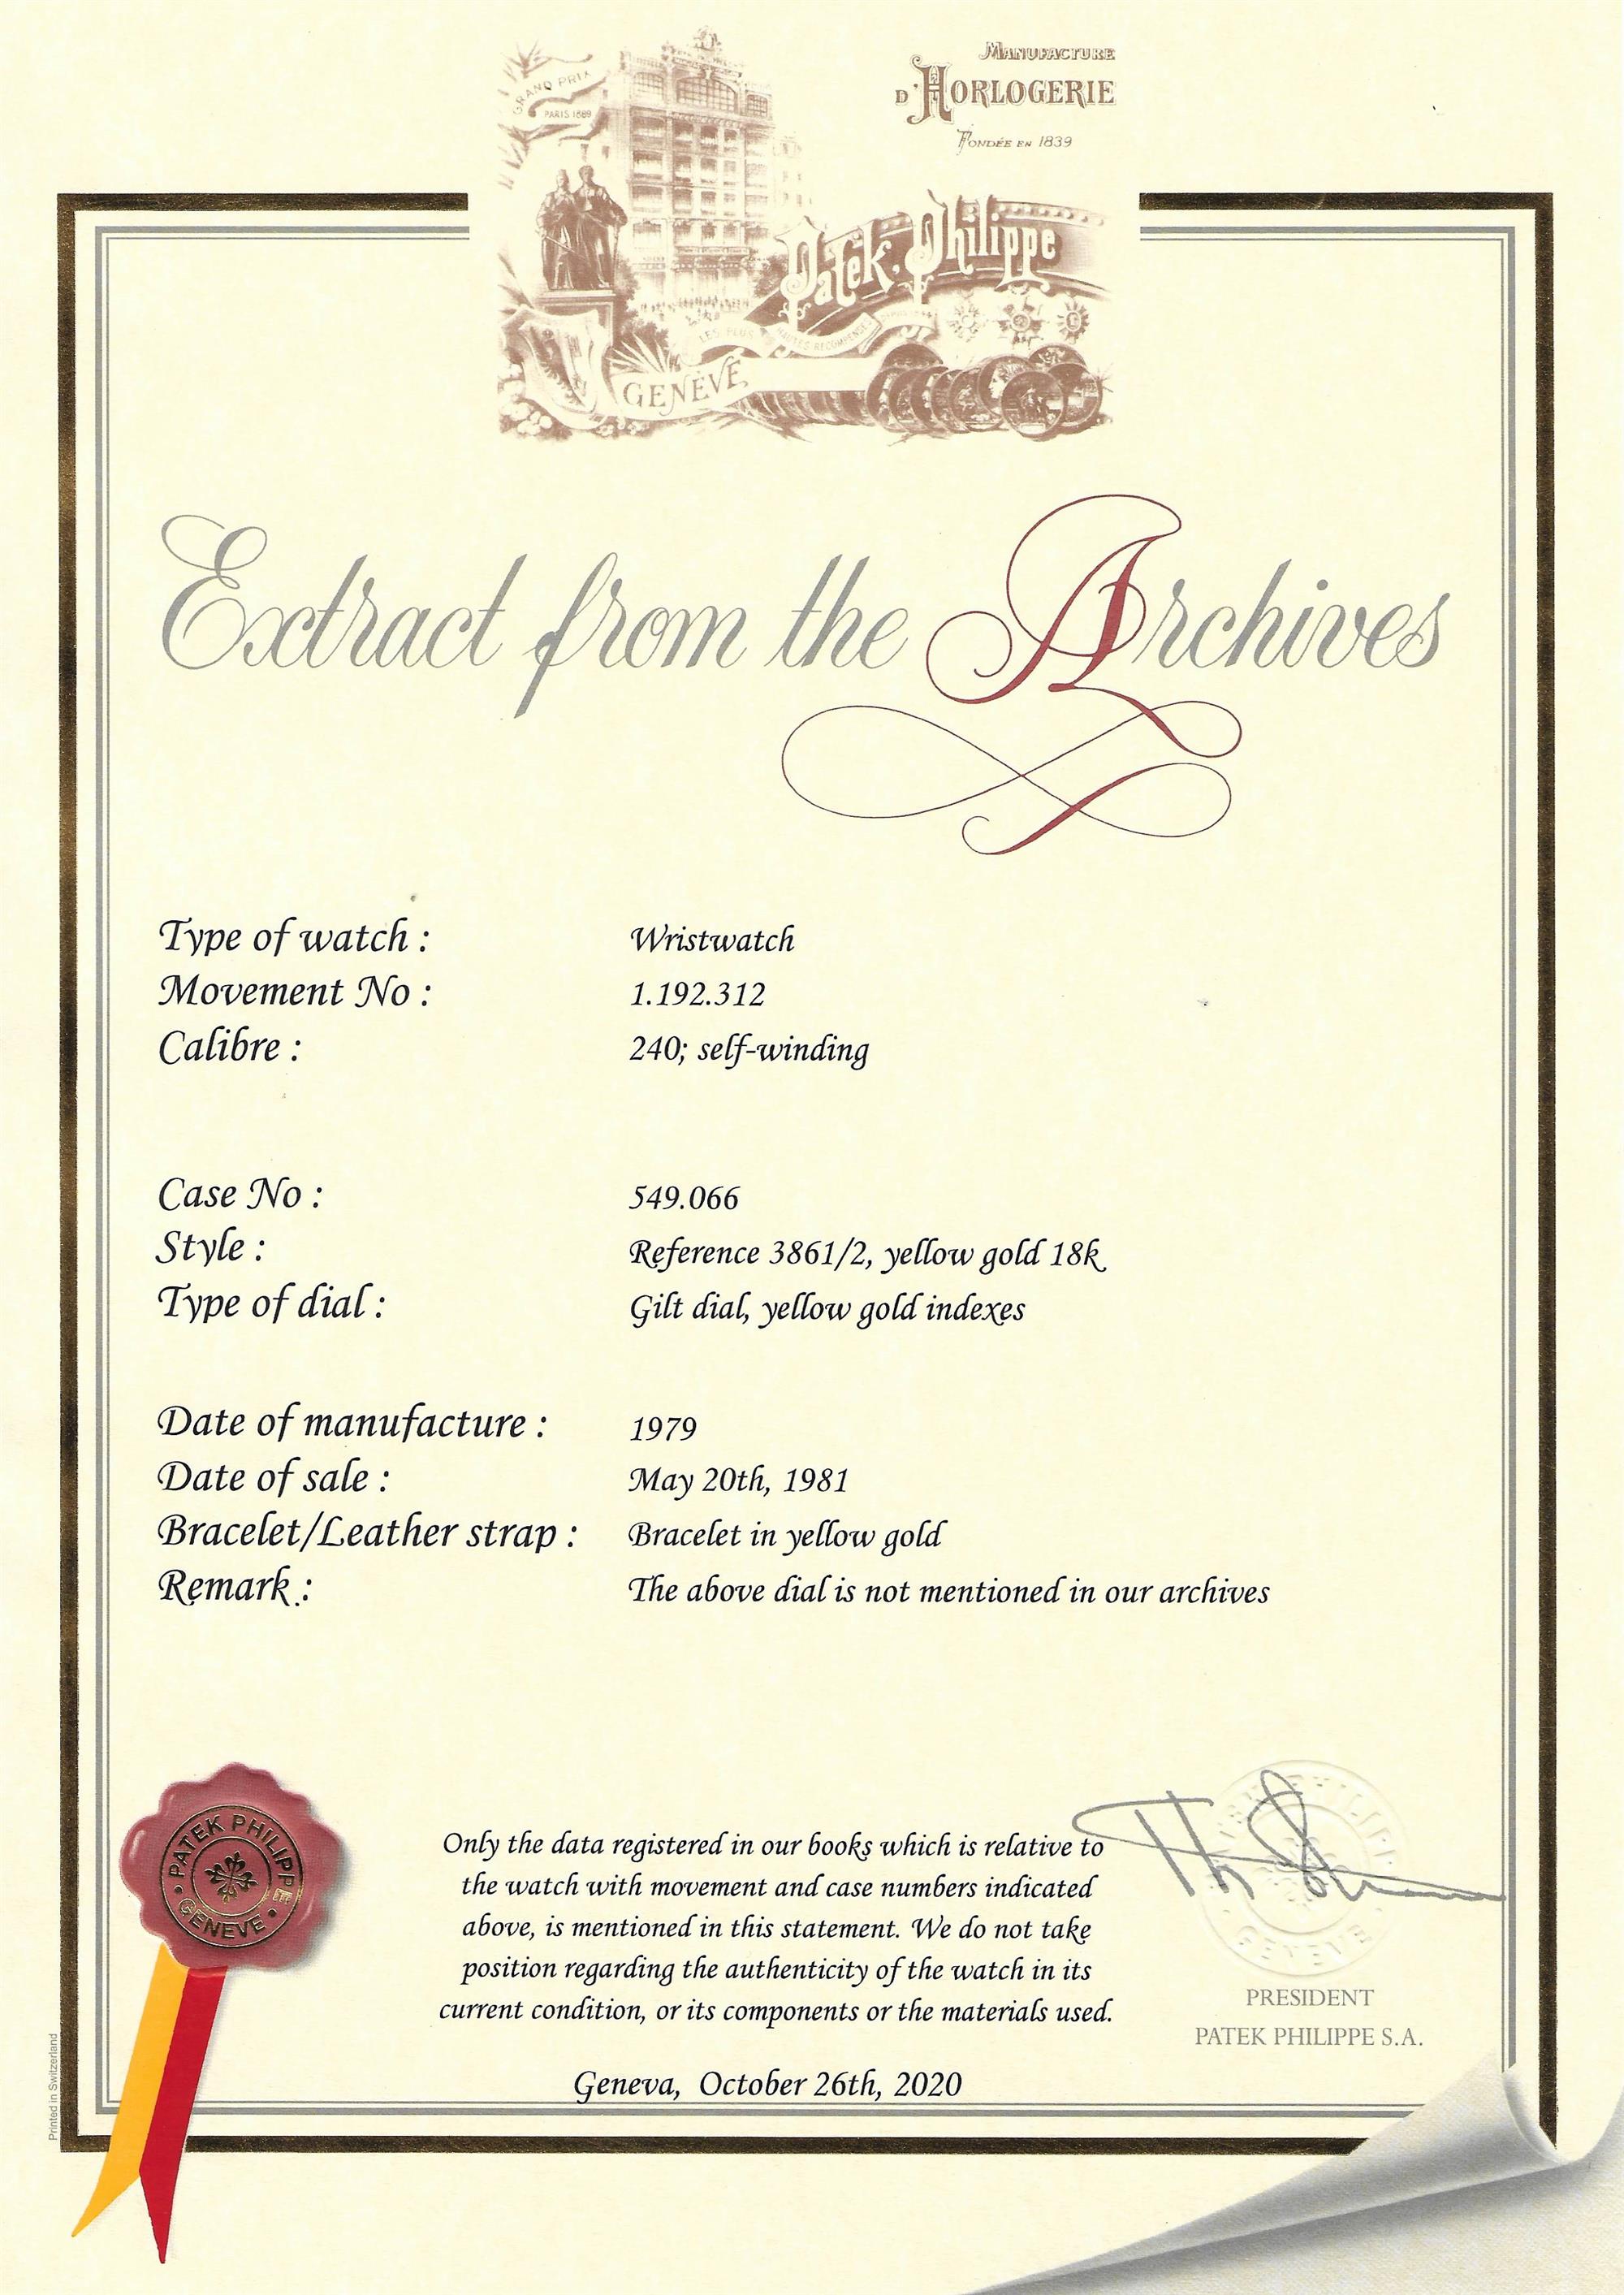 GRAND PRIX
PARIS 1889
MANUFACTURE
D'HORLOGERIE
FONDÉE EN 1839
Patek Philippe
LES PLUS HAUTES RECOMPENSES
GENÈVE
Extract from the Archives
Type of watch : Wristwatch
Movement No : 1.192.312
Calibre : 240; self-winding
Case No : 549.066
Style : Reference 3861/2, yellow gold 18k
Type of dial : Gilt dial, yellow gold indexes
Date of manufacture : 1979
Date of sale : May 20th, 1981
Bracelet/Leather strap : Bracelet in yellow gold
Remark : The above dial is not mentioned in our archives
PATEK PHILIPPE
GENEVE
Only the data registered in our books which is relative to
the watch with movement and case numbers indicated
above, is mentioned in this statement. We do not take
position regarding the authenticity of the watch in its
current condition, or its components or the materials used.
GENEVE
PRESIDENT
PATEK PHILIPPE S.A.
Geneva, October 26th, 2020
Printed in Switzerland